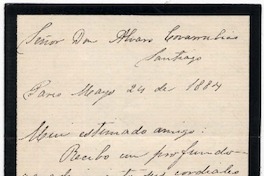 Señor Don Alvaro Covarrubias
Santiago
Paris Mayo 24 de 1884
Mui estimado amigo:
Recibo con profundo
cordiales